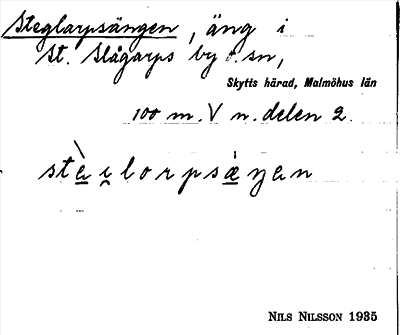 Steglarpsängen, äng i
St. Slågarps by o. sn,
Skytts härad, Malmöhus län
100 m. V n. delen 2.
stèi̯lorpsæ̀ŋan
NILS NILSSON 1935